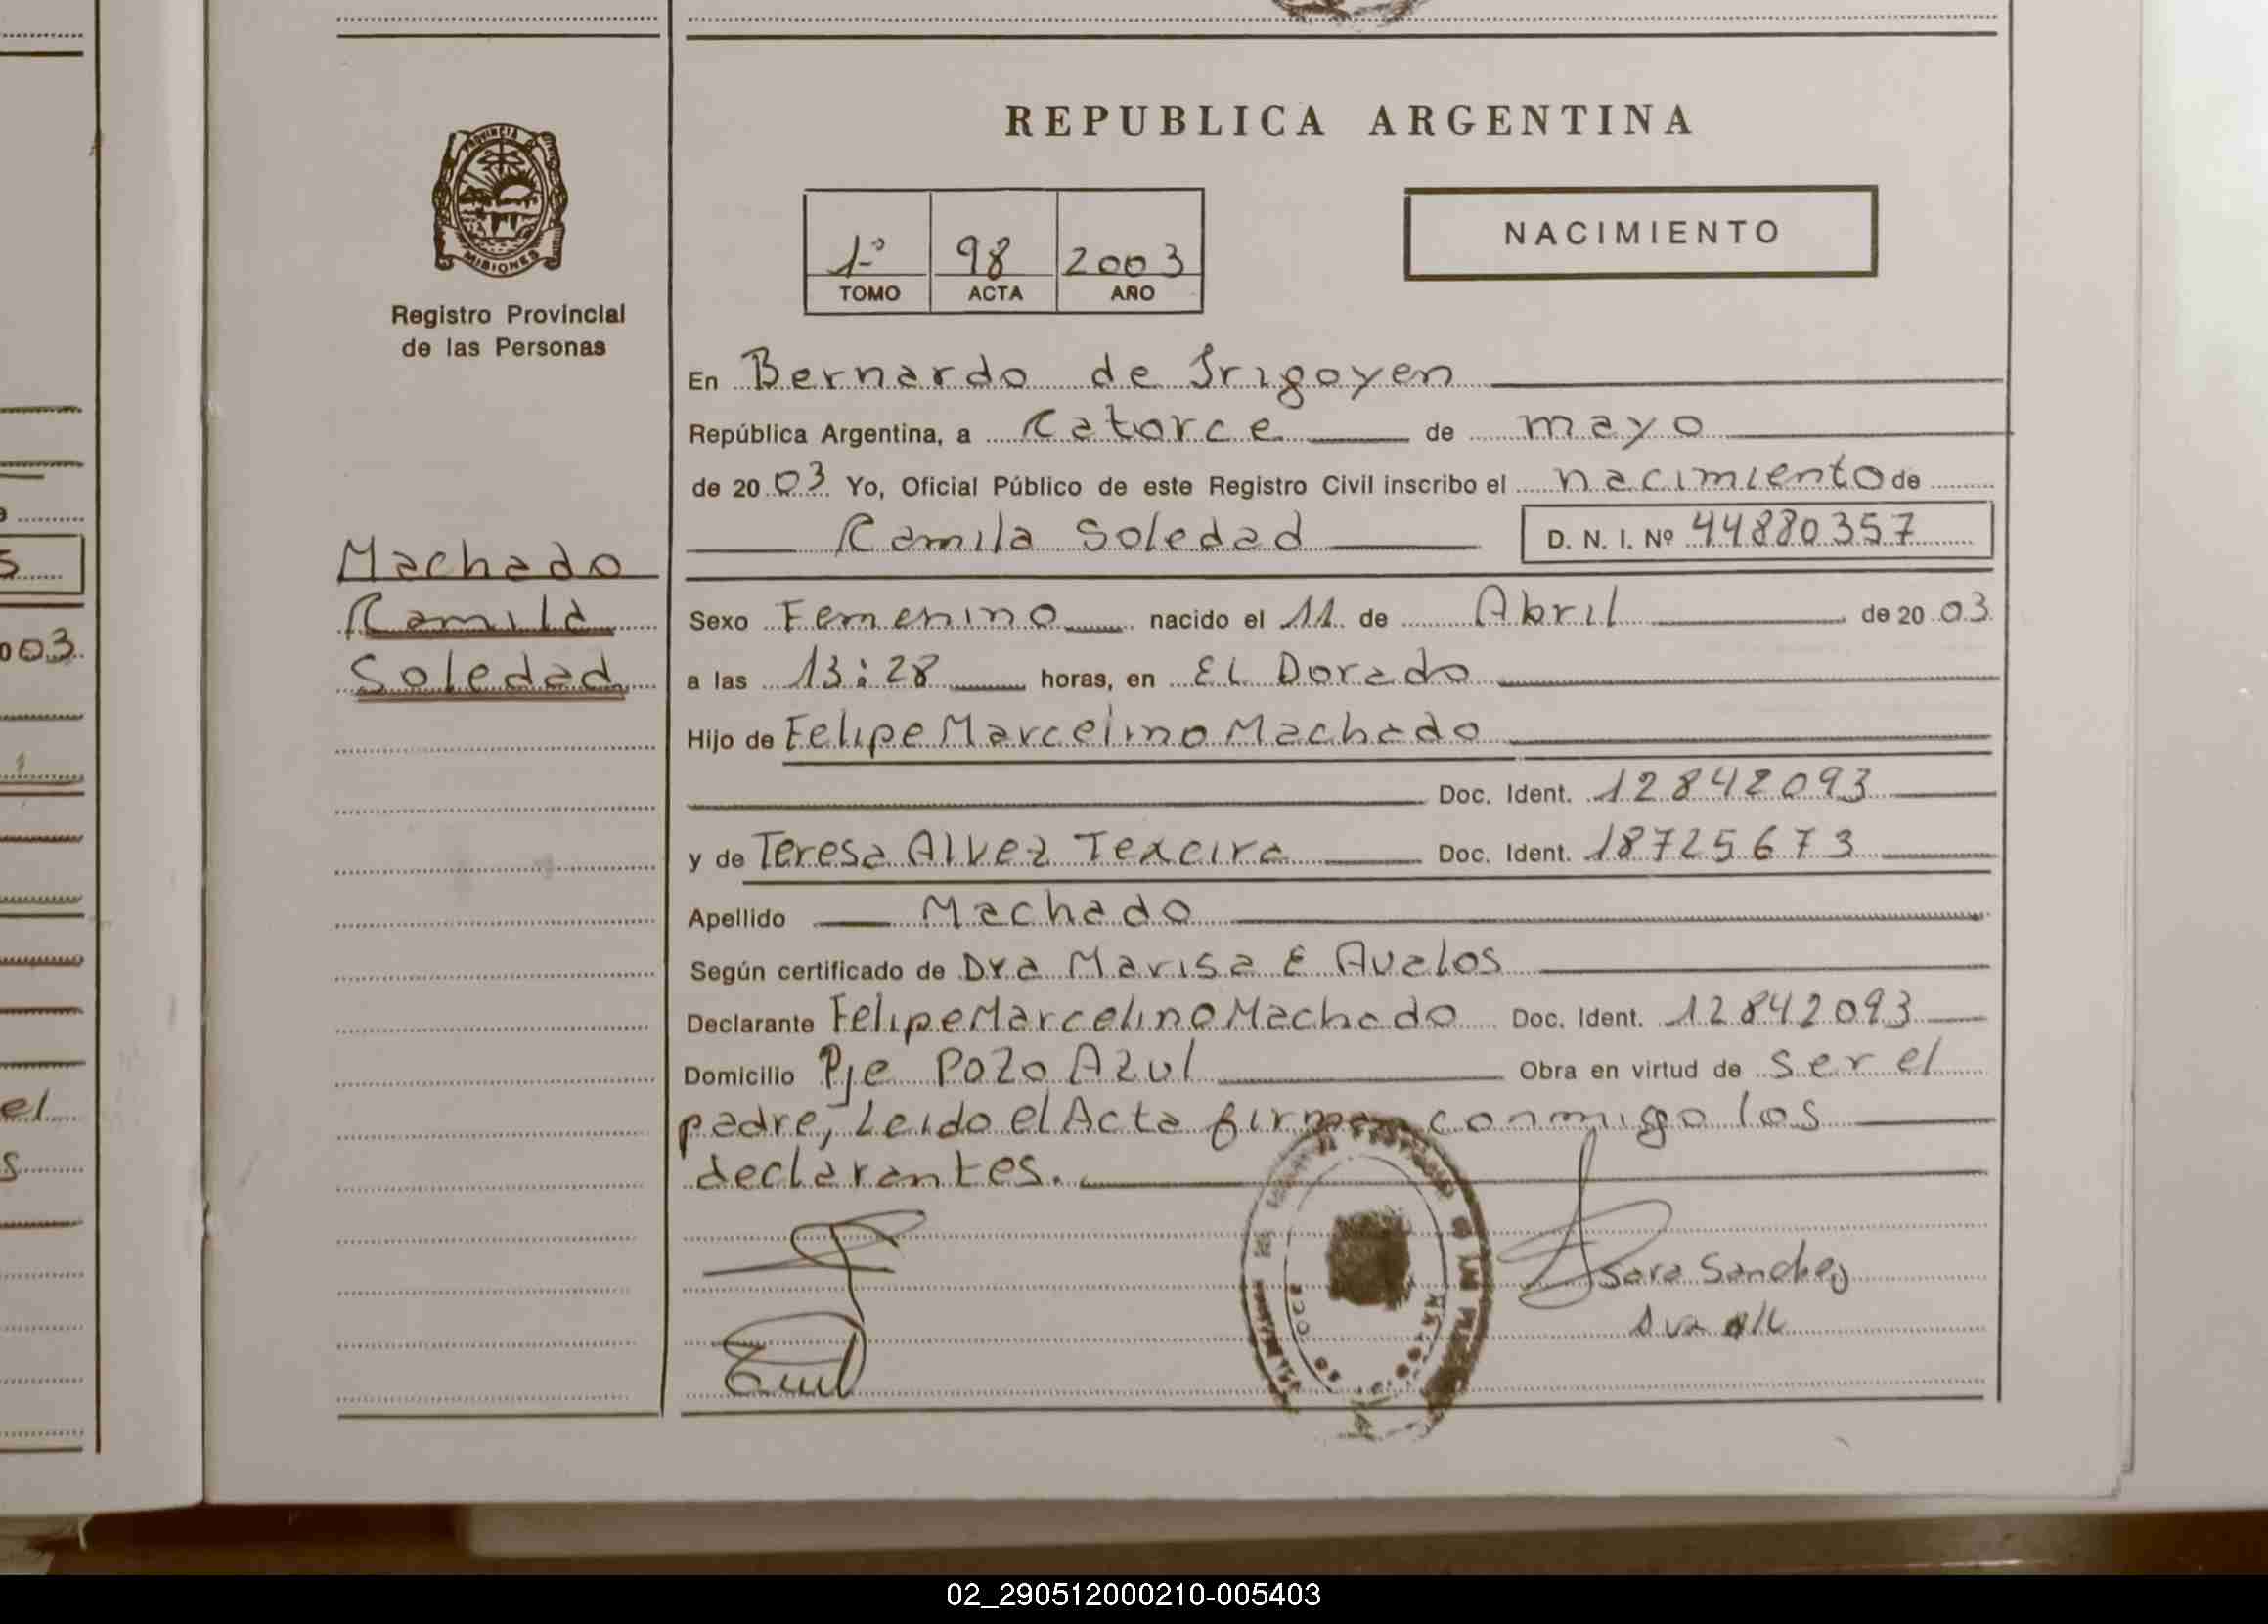 REPUBLICA ARGENTINA
PROVINCIA DE
MISIONES
Registro Provincial
de las Personas
1º 98 2003
TOMO ACTA AÑO
NACIMIENTO
En Bernardo de Irigoyen
República Argentina, a Catorce de mayo
de 2003 Yo, Oficial Público de este Registro Civil inscribo el nacimiento de
Camila Soledad D. N. I. Nº 44880357
Machado
Camila
Soledad
Sexo Femenino nacido el 11 de Abril de 2003
a las 13:28 horas, en EL Dorado
Hijo de Felipe Marcelino Machado
Doc. Ident. 12842093
y de Teresa Alvez Texeira Doc. Ident. 18725673
Apellido Machado
Según certificado de Dra Marisa E Avalos
Declarante Felipe Marcelino Machado Doc. Ident. 12842093
Domicilio Pje Pozo Azul Obra en virtud de ser el
padre, Leido el Acta firman conmigo los
declarantes.
Sara Sanchez
003
el
s
02_290512000210-005403